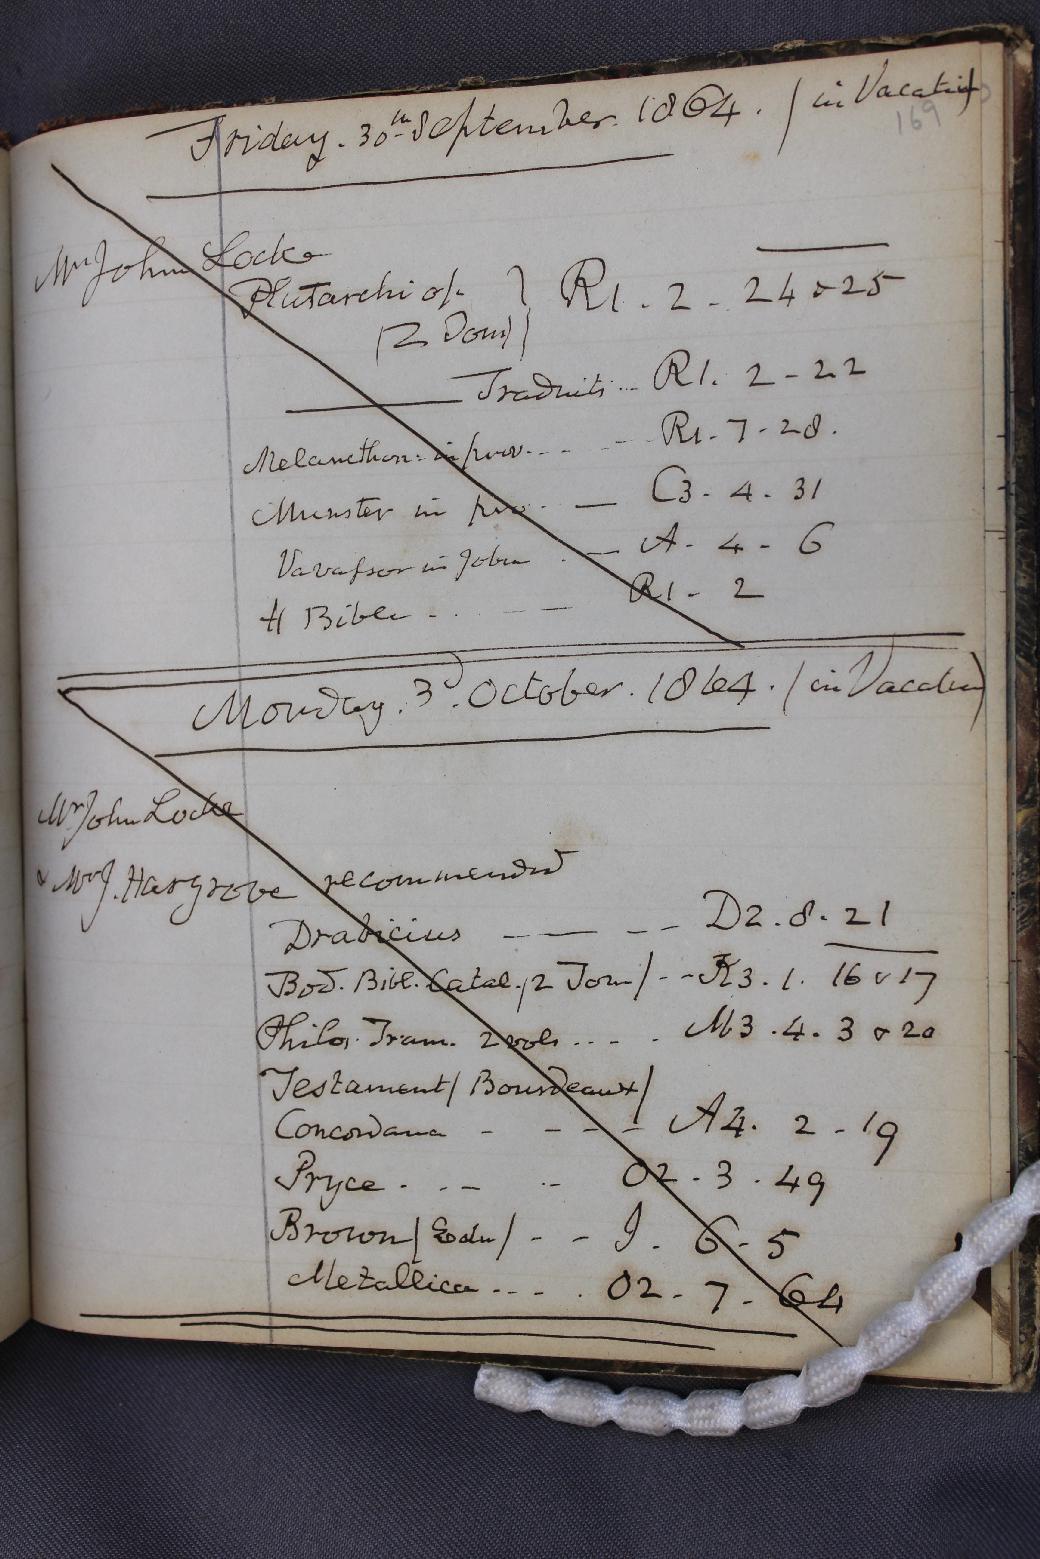 Friday. 30th September. 1864. (in Vacation)
169
Mr John Locke
Plutarchi op. } R1. 2 - 24 & 25
(2 Tom)
——— Traduits... R1. 2 - 22
Melancthon: in prov... - R1. 7 - 28.
Munster in pro.. — C3. 4. 31
Vavassor in John . — A. 4 - 6
H Bible . . — R1 - 2
Monday. 3d. October. 1864. (in Vacation)
Mr John Locke
& Mr J. Hargrove recommended
Drabicius — — — D2. 8. 21
Bod. Bibl. Catal. (2 Tom) - - K3. 1. 16 & 17
Philos. Trans. 2 vols.... M3. 4. 3 & 20
Testament (Bourdeaux)
Concordana - - - - A4. 2 - 19
Pryce . . - - O2. 3. 49
Brown (Edw) - - J. 6 - 5
Metallica ... . O2 - 7 - 64